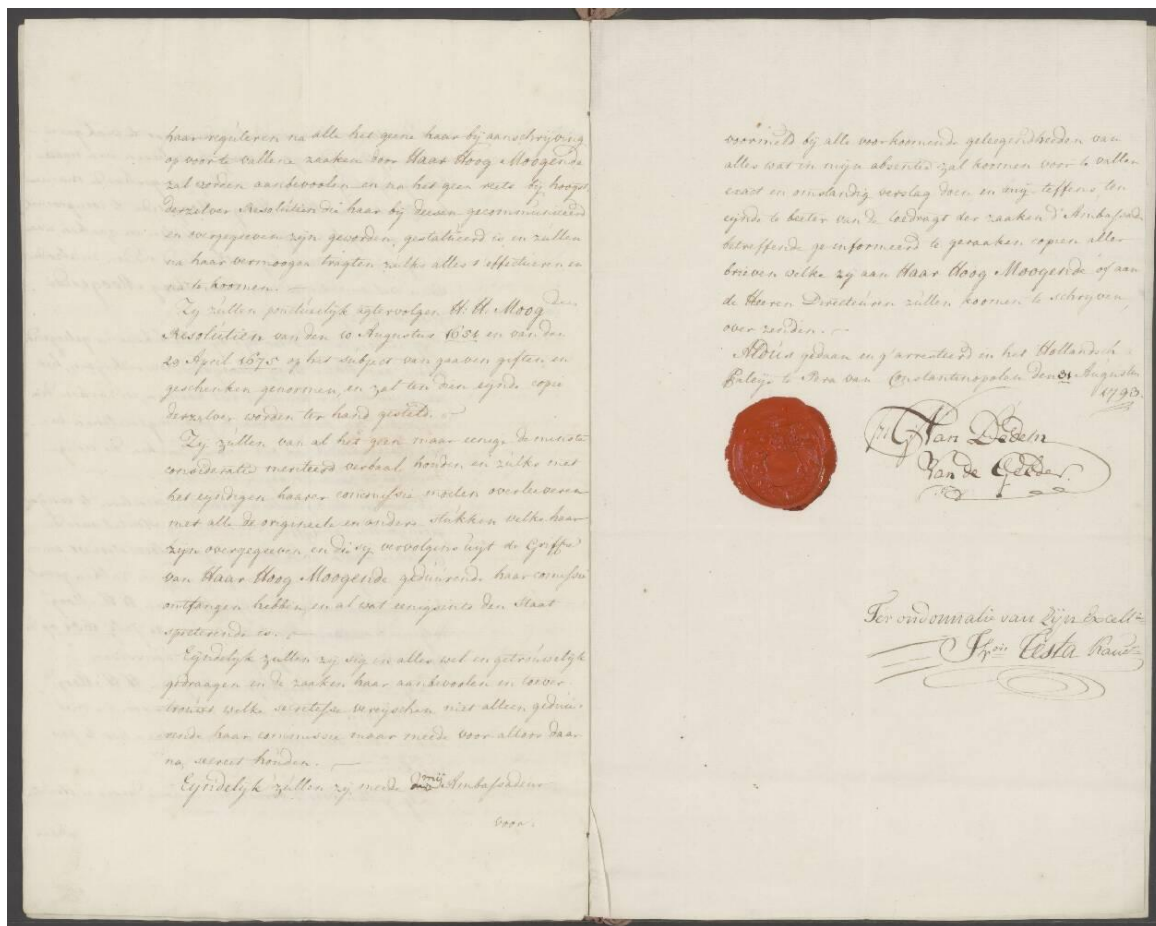 haar reguleren na alle het geene haar bij aanschrijving
op voor te vallene zaaken door Haar Hoog Moogende
zal worden aanbevoolen en na het geen reets bij hoogst
derzelver Resolutien die haar bij deesen gecommuniceerd
en overgegeven zijn geworden, gestatueerd is, en zullen
na haar vermoogen tragten zulks alles t effectueren en
na te koomen. —
Zy zullen punctuelijk agtervolgen H: H. Moogde
Resolutien van den 10 Augustus 1651 en van den
29 April 1675 op het subject van gaaven giften en
geschenken genomen, en zal ten dien eynde copie
derzelver worden ter hand gesteld. —
Zy zullen van al het geen maar eenige de minste
consideratie meriteerd verbaal houden en zulks met
het eyndigen haarer commissie moeten overleeveren
met alle de origineele en andere stukken welke haar
zijn overgegeeven, en die zy vervolgens uijt de Griffie
van Haar Hoog Moogende geduurende haar commissie
ontfangen hebben, en al wat eenigsints den Staat
specteerende is. —
Eyndelijk zullen zy sig in alles wel en getrouwelijk
gedraagen en de zaaken haar aanbevoolen en toever
trouwt welke secretesse vereyschen niet alleen geduu-
rende haar commissie maar meede voor altoos daar
na, secreet houden. —
Eyndelyk zullen zy meede mij Ambassadeur
voor.
voormeld bij alle voorkoomende geleegendheeden van
alles wat in mijn absentie zal koomen voor te vallen
exact en omstandig verslag doen en mij teffens, ten
eynde te beeter van de toedragt der zaaken d'Ambassade
betreffende geinformeerd te geraaken copien aller
brieven welke zy aan Haar Hoog Moogende of aan
de Heeren Directeuren zullen koomen te schrijven,
over zenden. —
Aldus gedaan en g'arresteerd in het Hollandsch
Paleys te Pera van Constantinopolen den 31 Augustus
1793.
Van Dedem
Van de Gelder.
Ter ordonnatie van Zijn Excelltie
Testa Kanc